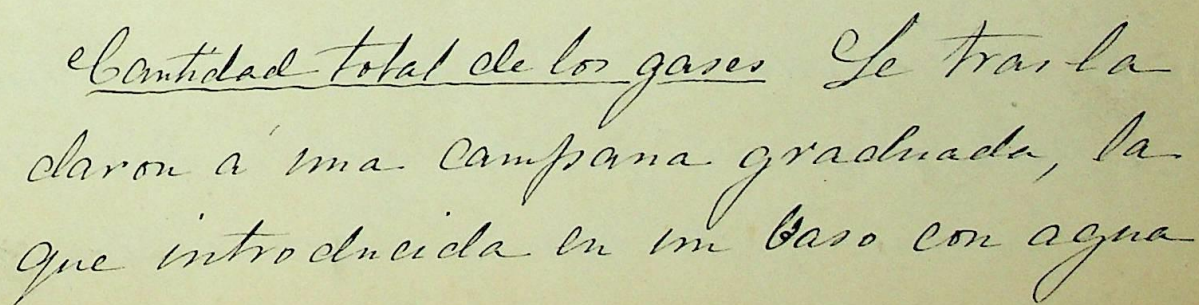 Cantidad total de los gases Se trasla
daron á una campana graduada, la
que introducida en un vaso con agua